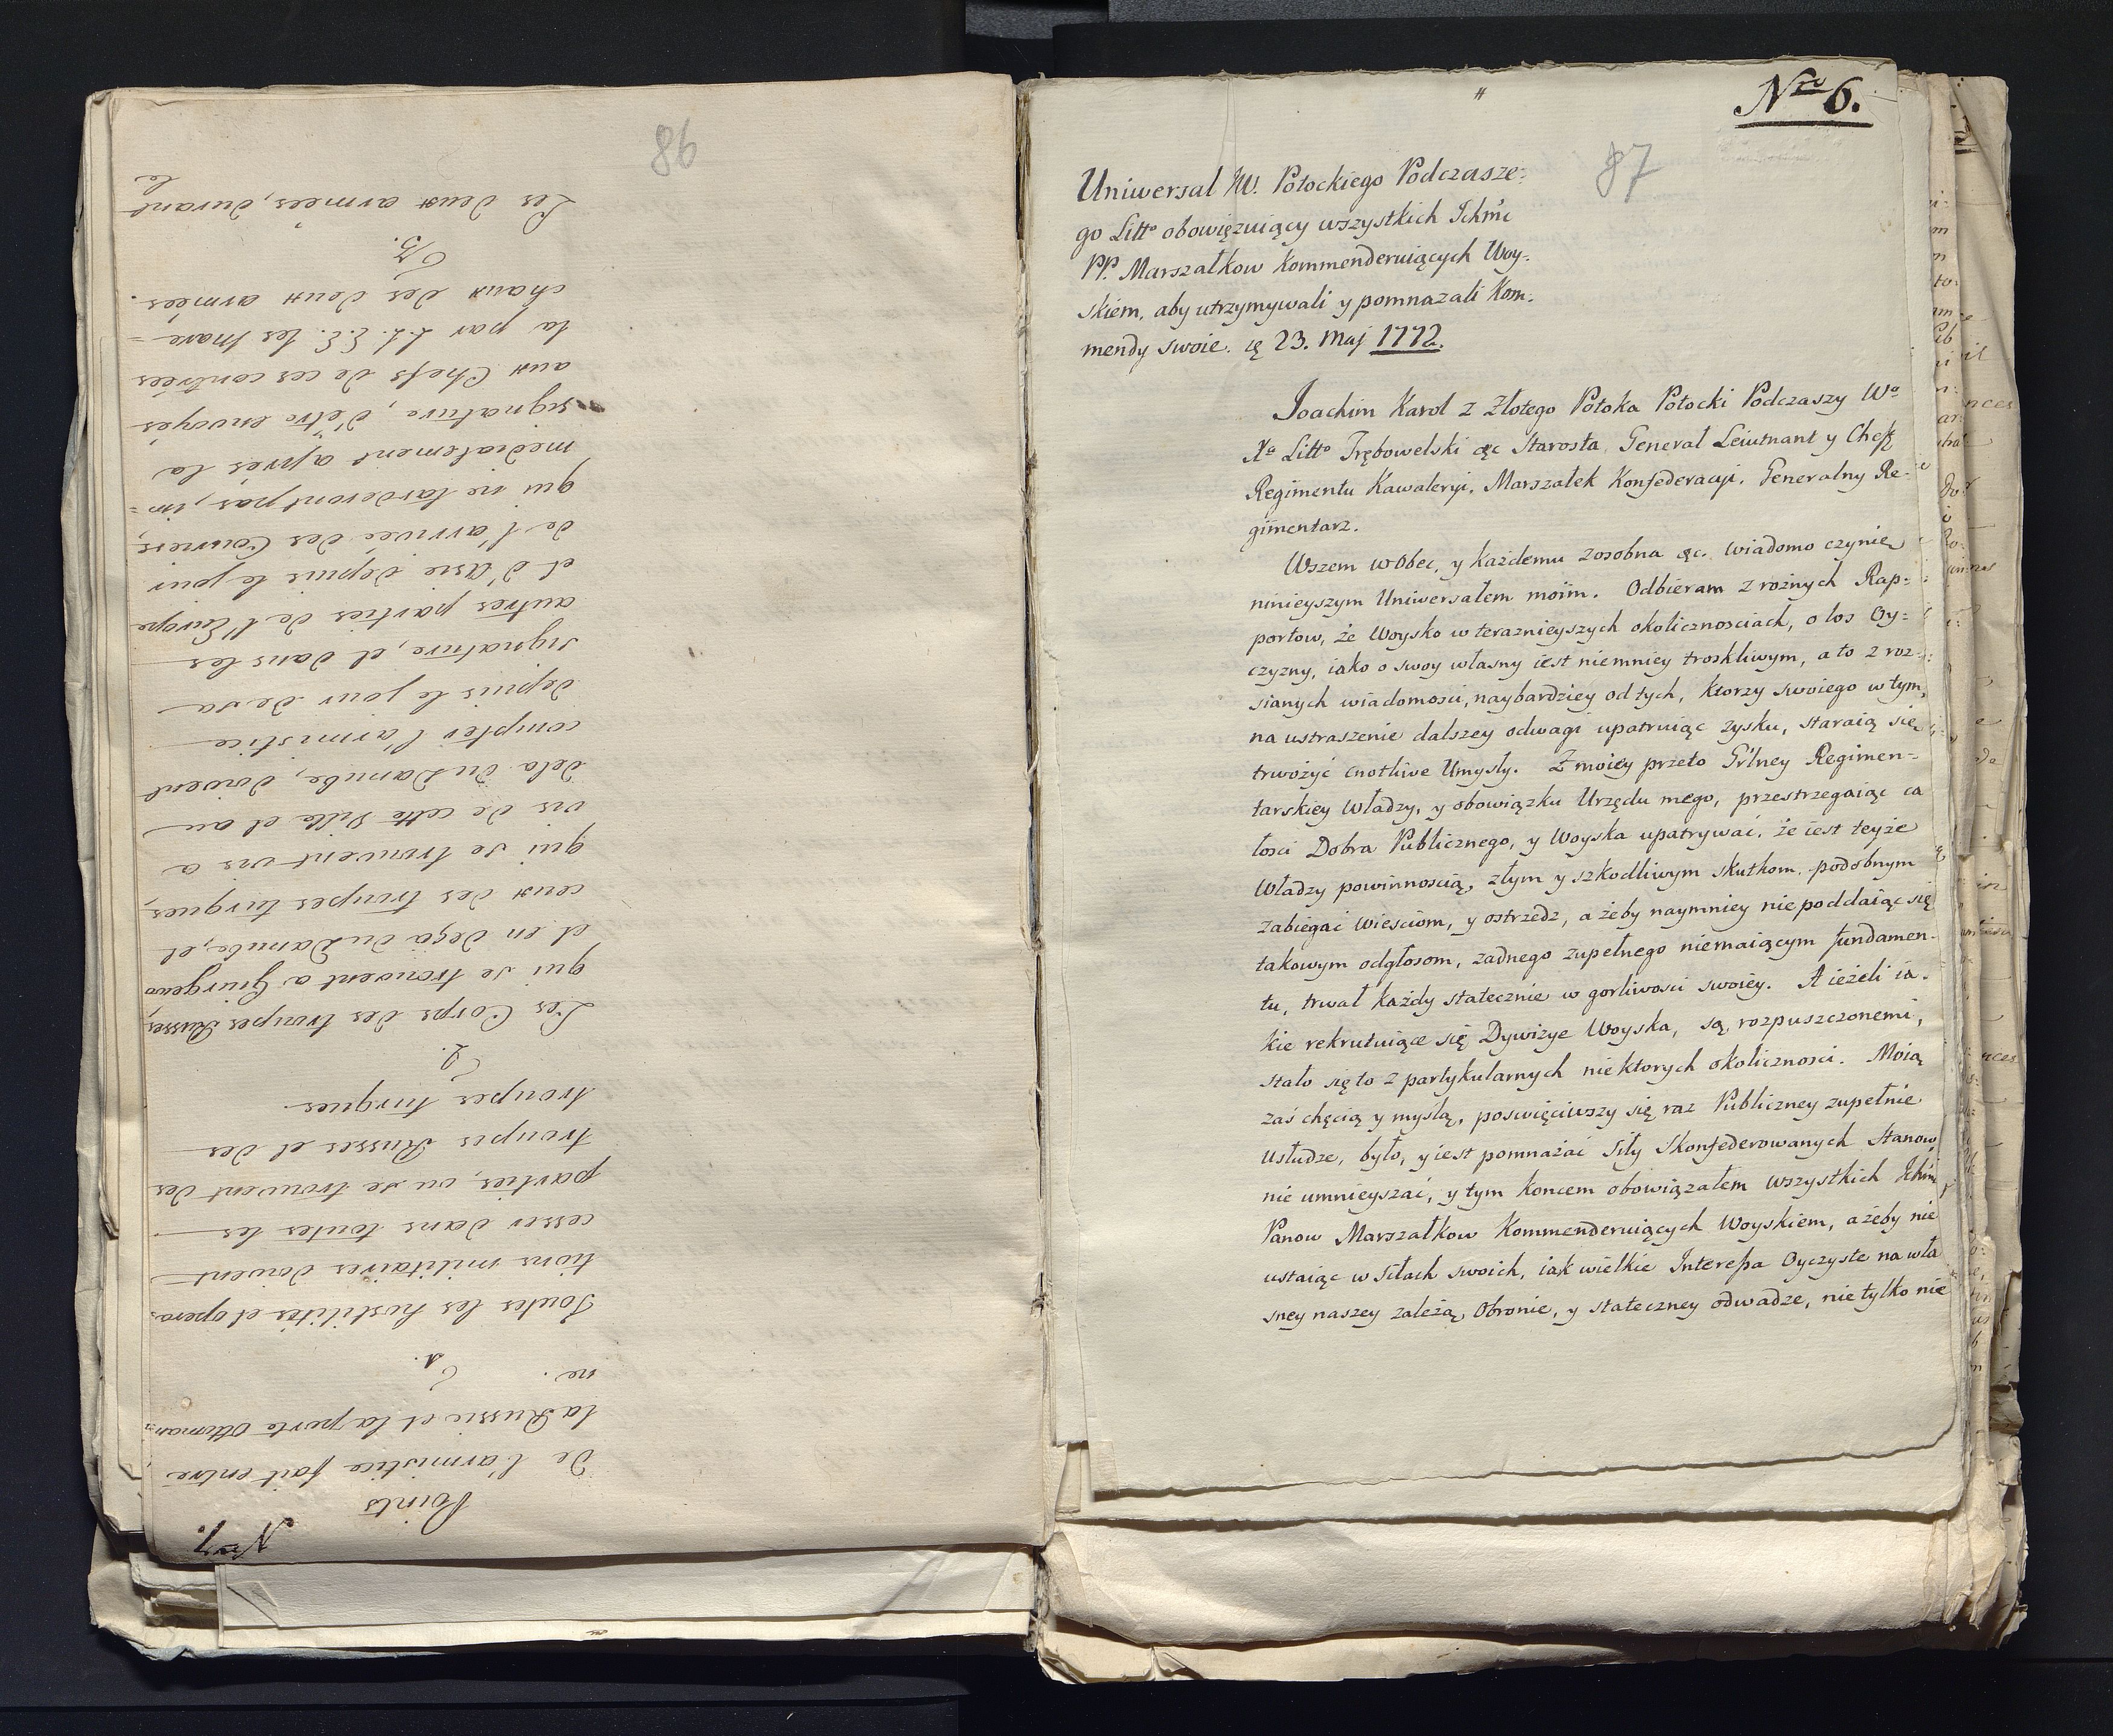 86
Nro 7.
Points
De l'armistice fait entre
la Russie et la porte Ottoman=
ne.
1.
Toutes les hostilités et opera=
tions militaires doivent
cesser dans toutes les
parties, ou se trouvent des
troupes Russes et des
troupes turques
2.
Les Corps des troupes Russes,
qui se trouvent a Giurgewo
et en deça du Danube, et
ceux des troupes turques,
qui se trouvent vis a
vis de cette Ville et au
dela du Danube, doivent
compter l'armistice
depuis le jour de sa
signature, et dans les
autres parties de l'Europe
et d'Asie depuis le jour
de l'arrivée des Couriers,
qui ne tarderont pas, im=
mediatement après la
signature, d'etre envoyés
aux Chefs de ces contrées
la par L.L. E.E. les Mare=
chaux des deux armées.
3.
Les deux armées, durant
le
Nro 6.
87
Uniwersał JW. Potockiego Podczasze=
go Litto obowięzuiący wszystkich Ichmć
PP. Marszałkow Kommenderuiących Woy=
skiem, aby utrzymywali y pomnazali Kom=
mendy swoie. ię 23. Maj 1772.
Joachim Karol z Złotego Potoka Potocki Podczaszy Wo
Xo Litto Trębowelski &c Starosta, Generał Leiutnant y Cheff
Regimentu Kawaleryi, Marszałek Konfederacyi, Generalny Re-
gimentarz.
Wszem wobec, y każdemu zosobna &c. wiadomo czynię
ninieyszym Uniwersałem moim. Odbieram z rożnych Rap=
portow, że Woysko w teraznieyszych okolicznosciach, o los Oy=
czyzny, iako o swoy własny iest niemniey troskliwym, a to z roz=
sianych wiadomosci, naybardziey od tych, ktorzy swoiego w tym,
na ustraszenie dalszey odwagi upatruiąc zysku, staraią się
trwożyć cnotliwe Umysły. Z moiey przeto G'rlney Regimen=
tarskiey Władzy, y obowiązku Urzędu mego, przestrzegaiąc ca
łosci Dobra Publicznego, y Woyska upatrywać, że iest teyże
Władzy powinnoscią, złym y szkodliwym skutkom, podobnym
zabiegać wiesciom, y ostrzedz, a żeby naymniey niepoddaiąc się
takowym odgłosom, zadnego zupełnego niemaiącym fundamen-
tu, trwał każdy statecznie w gorliwosci swoiey. A ieżeli ia-
kie rekrutuiące się Dywizye Woyska, są rozpuszczonemi,
stało się to z partykularnych niektorych okolicznosci. Moią
zaś chęcią y myslą, poswięciwszy się raz Publiczney zupełnie
usłudze, było, y iest pomnażać siły Skonfederowanych Stanow,
nie umnieyszać, y tym koncem obowiązałem wszystkich Ichmć
Panow Marszałkow Kommenderuiących Woyskiem, ażeby nie
ustaiąc w siłach swoich, iak wielkie Interessa Oyczyste na wła
sney naszey zależą, Obronie, y stateczney odwadze, nie tylko nie